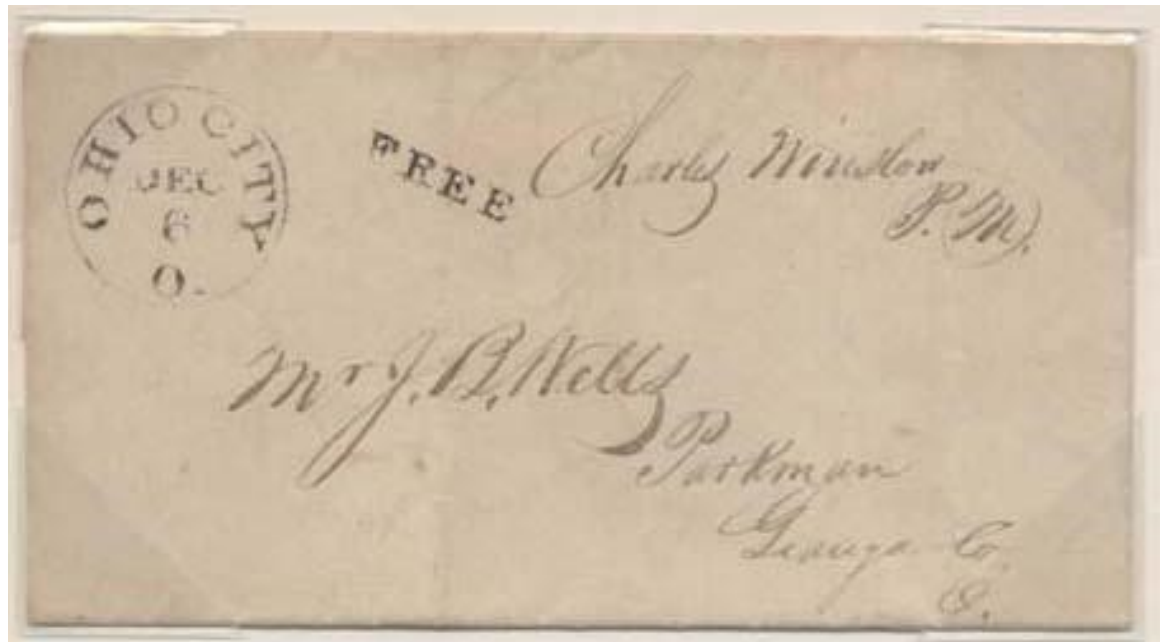 OHIO CITY
DEC
6
O.
FREE
Charles Winslow
P. M.
Mr J. B. Wells
Parkman
Geauga Co.
O.